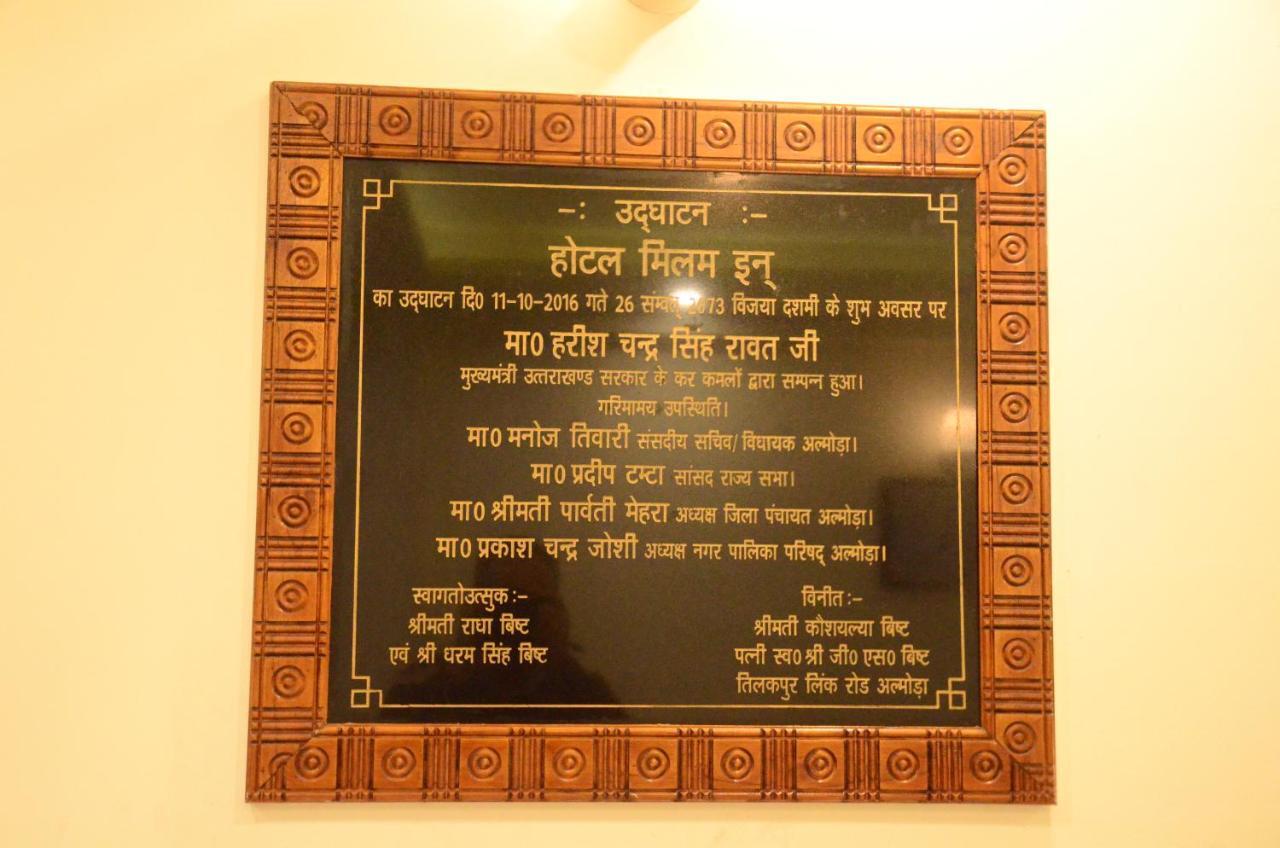 -: उद्घाटन :-
होटल मिलम इन्
का उद्घाटन दि0 11-10-2016 गते 26 सम्वत् 2073 विजया दशमी के शुभ अवसर पर
मा0 हरीश चन्द्र सिंह रावत जी
मुख्यमंत्री उत्तराखण्ड सरकार के कर कमलों द्वारा सम्पन्न हुआ।
गरिमामय उपस्थिति।
मा0 मनोज तिवारी संसदीय सचिव/विधायक अल्मोड़ा।
मा0 प्रदीप टम्टा सांसद राज्य सभा।
मा0 श्रीमती पार्वती मेहरा अध्यक्ष जिला पंचायत अल्मोड़ा।
मा0 प्रकाश चन्द्र जोशी अध्यक्ष नगर पालिका परिषद् अल्मोड़ा।
स्वागतोउत्सुक :-
श्रीमती राधा बिष्ट
एवं श्री धरम सिंह बिष्ट
विनीत :-
श्रीमती कौशयल्या बिष्ट
पत्नी स्व0 श्री जी0 एस0 बिष्ट
तिलकपुर लिंक रोड अल्मोड़ा